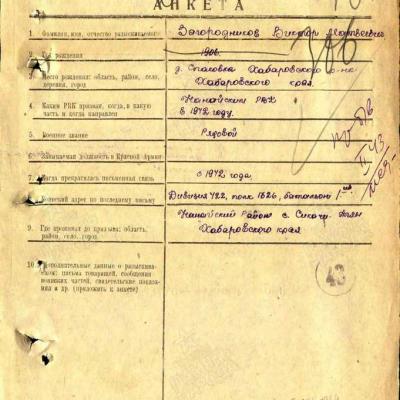 АНКЕТА
1. Фамилия, имя, отчество разыскиваемого Загородников Виктор Матвеевич
2. Год рождения 1906.
3. Место рождения: область, район, село, деревня, город д. Спасовка Хабаровского р-на Хабаровского края.
4. Каким РВК призван, когда, в какую часть и когда направлен Нанайским РВК в 1942 году.
5. Военное звание Рядовой
6. Занимаемая должность в Красной Армии
7. Когда прекратилась письменная связь с 1942 года.
8. Воинский адрес по последнему письму Дивизия 422, полк 1326, батальон 1-ый
9. Где проживал до призыва: область, район, село, город Нанайский район с. Сикачи-Алян Хабаровского края
10. Дополнительные данные о разыскиваемом: письма товарищей, сообщения воинских частей, свидетельские показания и др. (приложить к анкете)
43